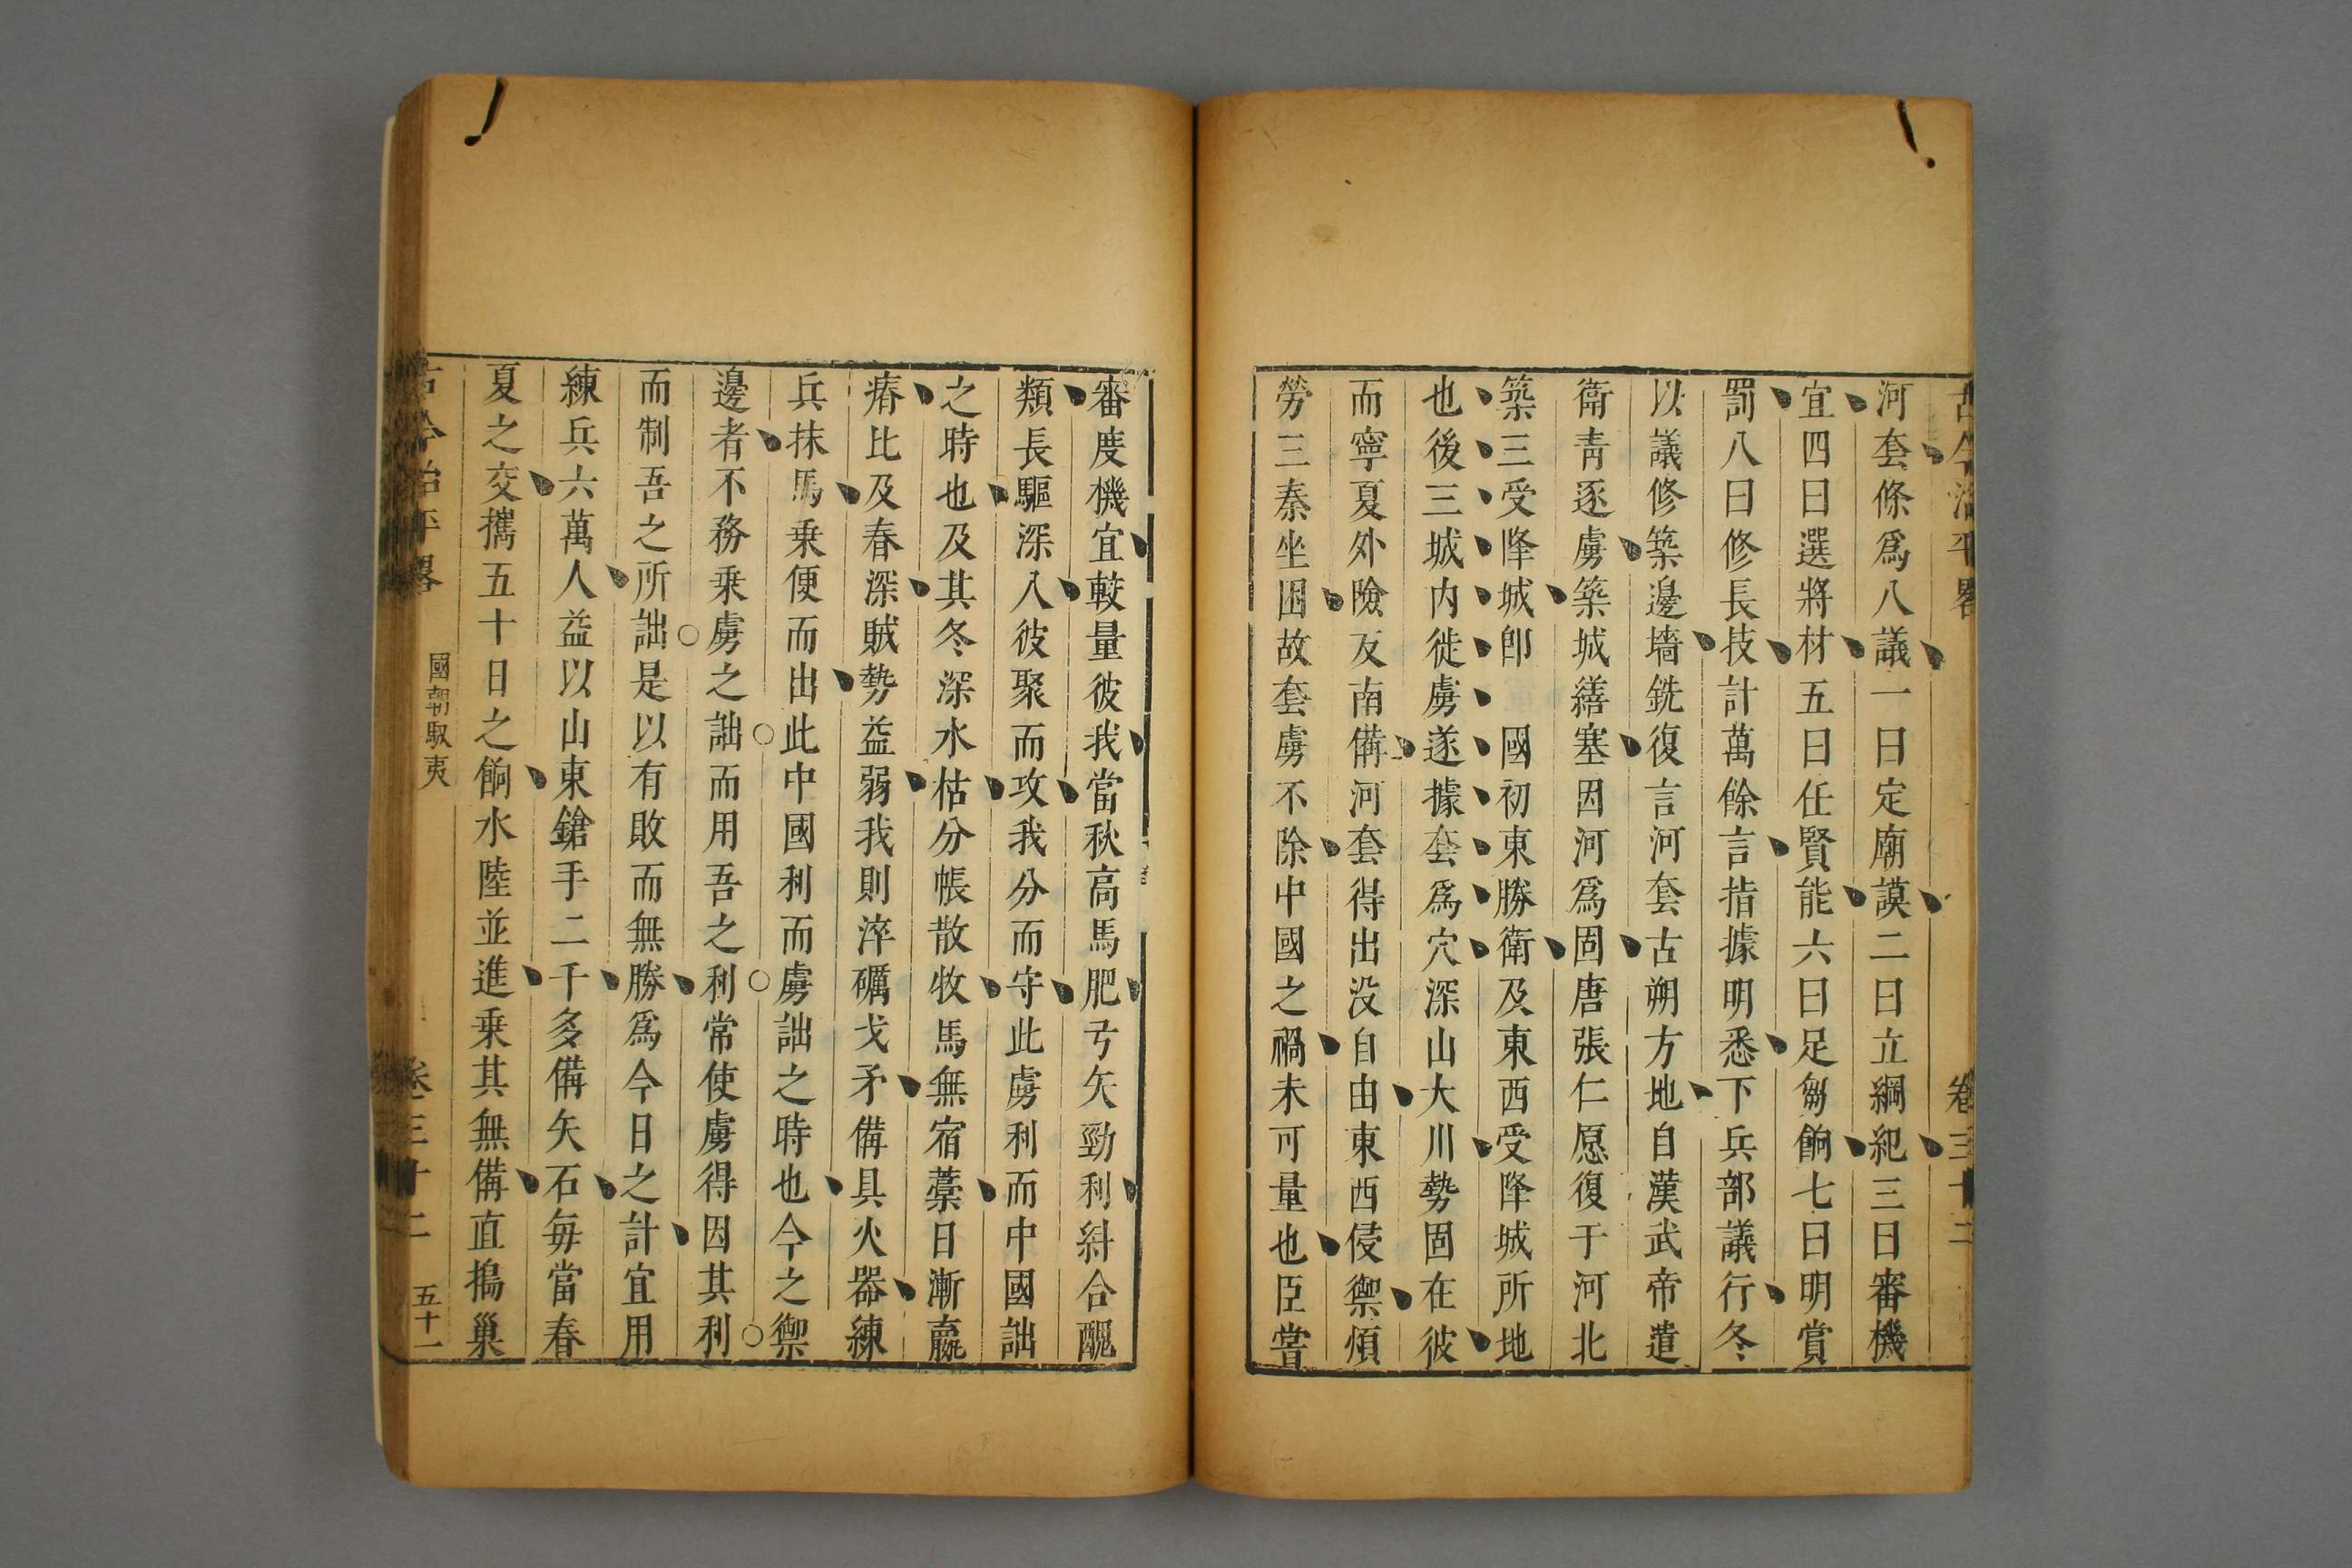 古今治平畧
卷三十二
河套條爲八議一曰定廟謨二曰立綱紀三曰審機
宜四曰選將材五曰任賢能六曰足芻餉七曰明賞
罰八曰修長技計萬餘言指據明悉下兵部議行冬
以議修築邊墻銑復言河套古朔方地自漢武帝遣
衛青逐虜築城繕塞因河爲固唐張仁愿復于河北
築三受降城卽 國初東勝衛及東西受降城所地
也後三城內徙虜遂據套爲穴深山大川勢固在彼
而寧夏外險反南備河套得出没自由東西侵禦煩
勞三秦坐困故套虜不除中國之禍未可量也臣嘗
審度機宜較量彼我當秋高馬肥弓矢勁利糾合醜
類長驅深入彼聚而攻我分而守此虜利而中國詘
之時也及其冬深水枯分帳散牧馬無宿藁日漸羸
瘠比及春深賊勢益弱我則淬礪戈矛備具火器練
兵抹馬乗便而出此中國利而虜詘之時也今之禦
邊者不務乗虜之詘而用吾之利常使虜得因其利
而制吾之所詘是以有敗而無勝爲今日之計宜用
練兵六萬人益以山東鎗手二千多備矢石每當春
夏之交攜五十日之餉水陸並進乗其無備直搗巢
古今治平畧
國朝馭夷
卷三十二
五十一